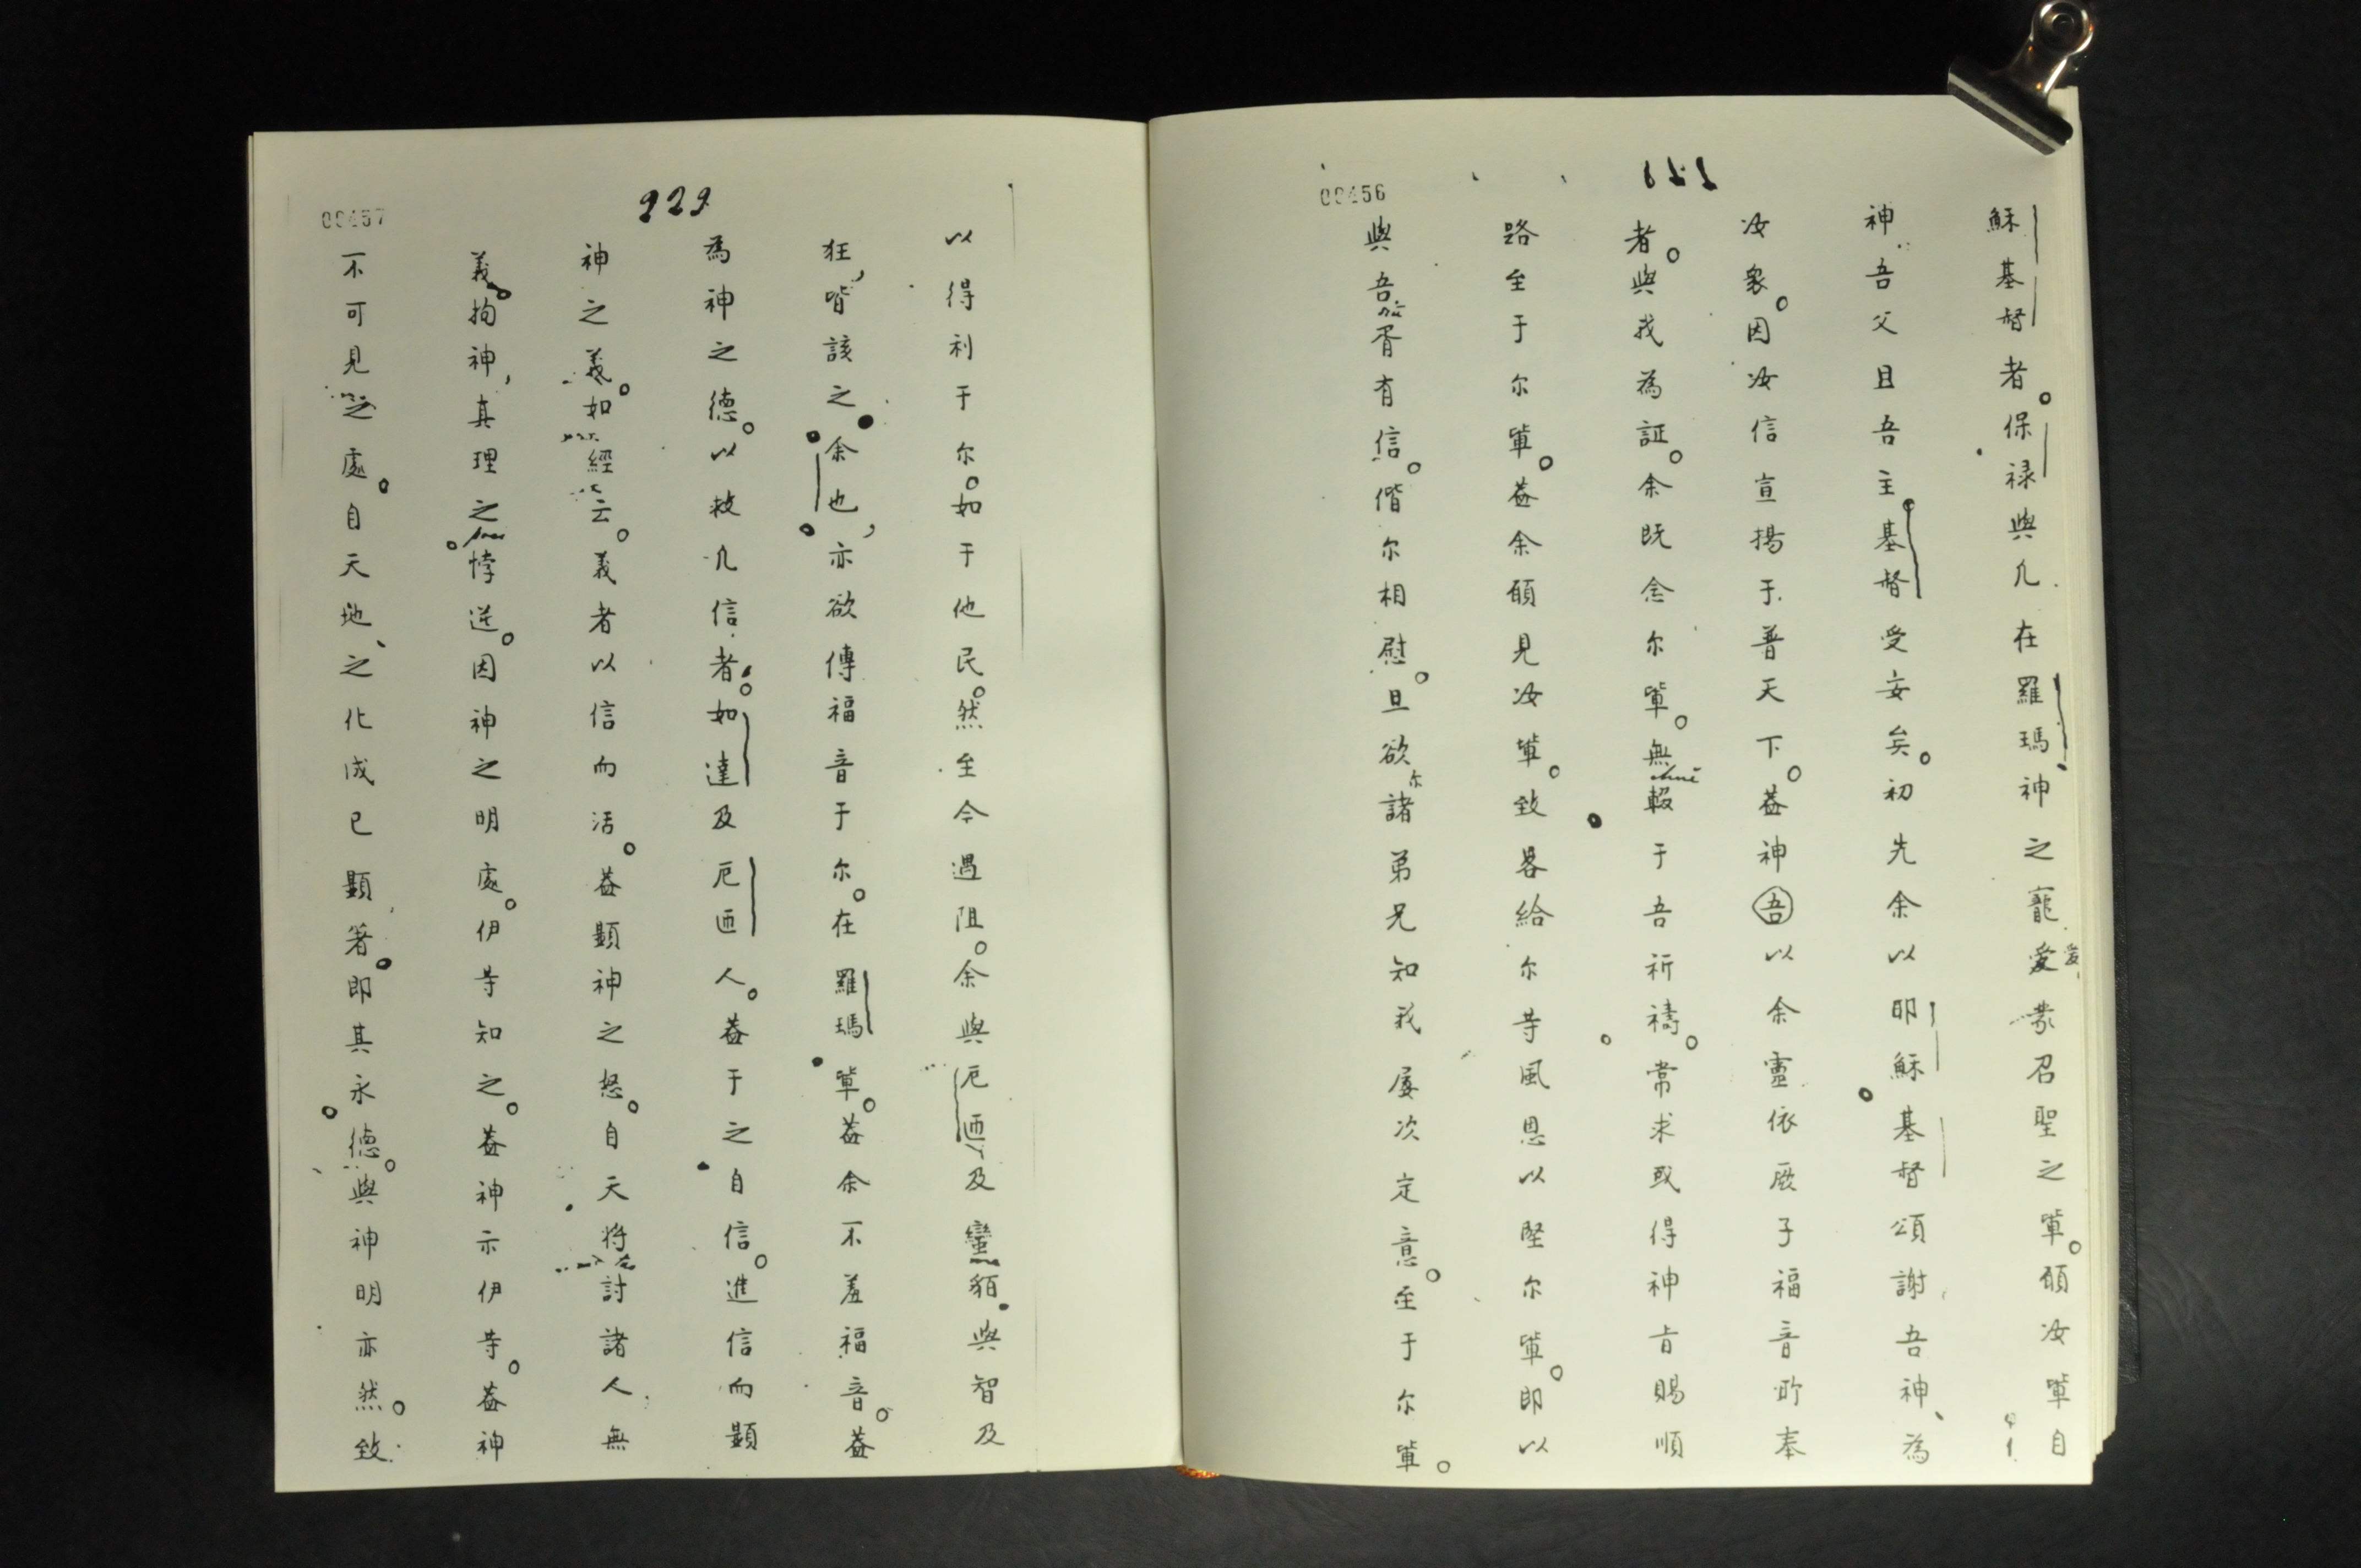 00456
穌基督者。保禄與凢在羅瑪、神之寵愛衆召聖之軰。願汝軰自
神吾父且吾主。基督受安矣。初先余以耶穌基督頌謝吾神、為
汝衆。因汝信宣揚于普天下。葢神吾以余靈依厥子福音所奉
者。與我為証。余既念尔軰。無輟于吾祈禱。常求或得神㫖賜順
路至于尔軰。葢余願見汝軰。致畧給尔等風恩以堅尔軰。即以
與吾胥有信。偕尔相慰。且欲尔諸弟兄知我屡次定意。至于尔軰。
229
00457
以得利于尔。如于他民。然至今遇阻。余與厄廼及蠻貊與智及
狂,皆該之余也,亦欲傳福音于尔。在羅瑪軰。葢余不羞福音。葢
為神之德。以救凢信者。如達及厄廼人。葢于之自信。進信而顯
神之義。如經云。義者以信而活。葢顯神之怒。自天将討諸人無
義。拘神,真理之悖逆。因神之明處。伊等知之。葢神示伊等。葢神
不可見之處。自天地、之化成已顯著。即其永德。與神明亦然。致